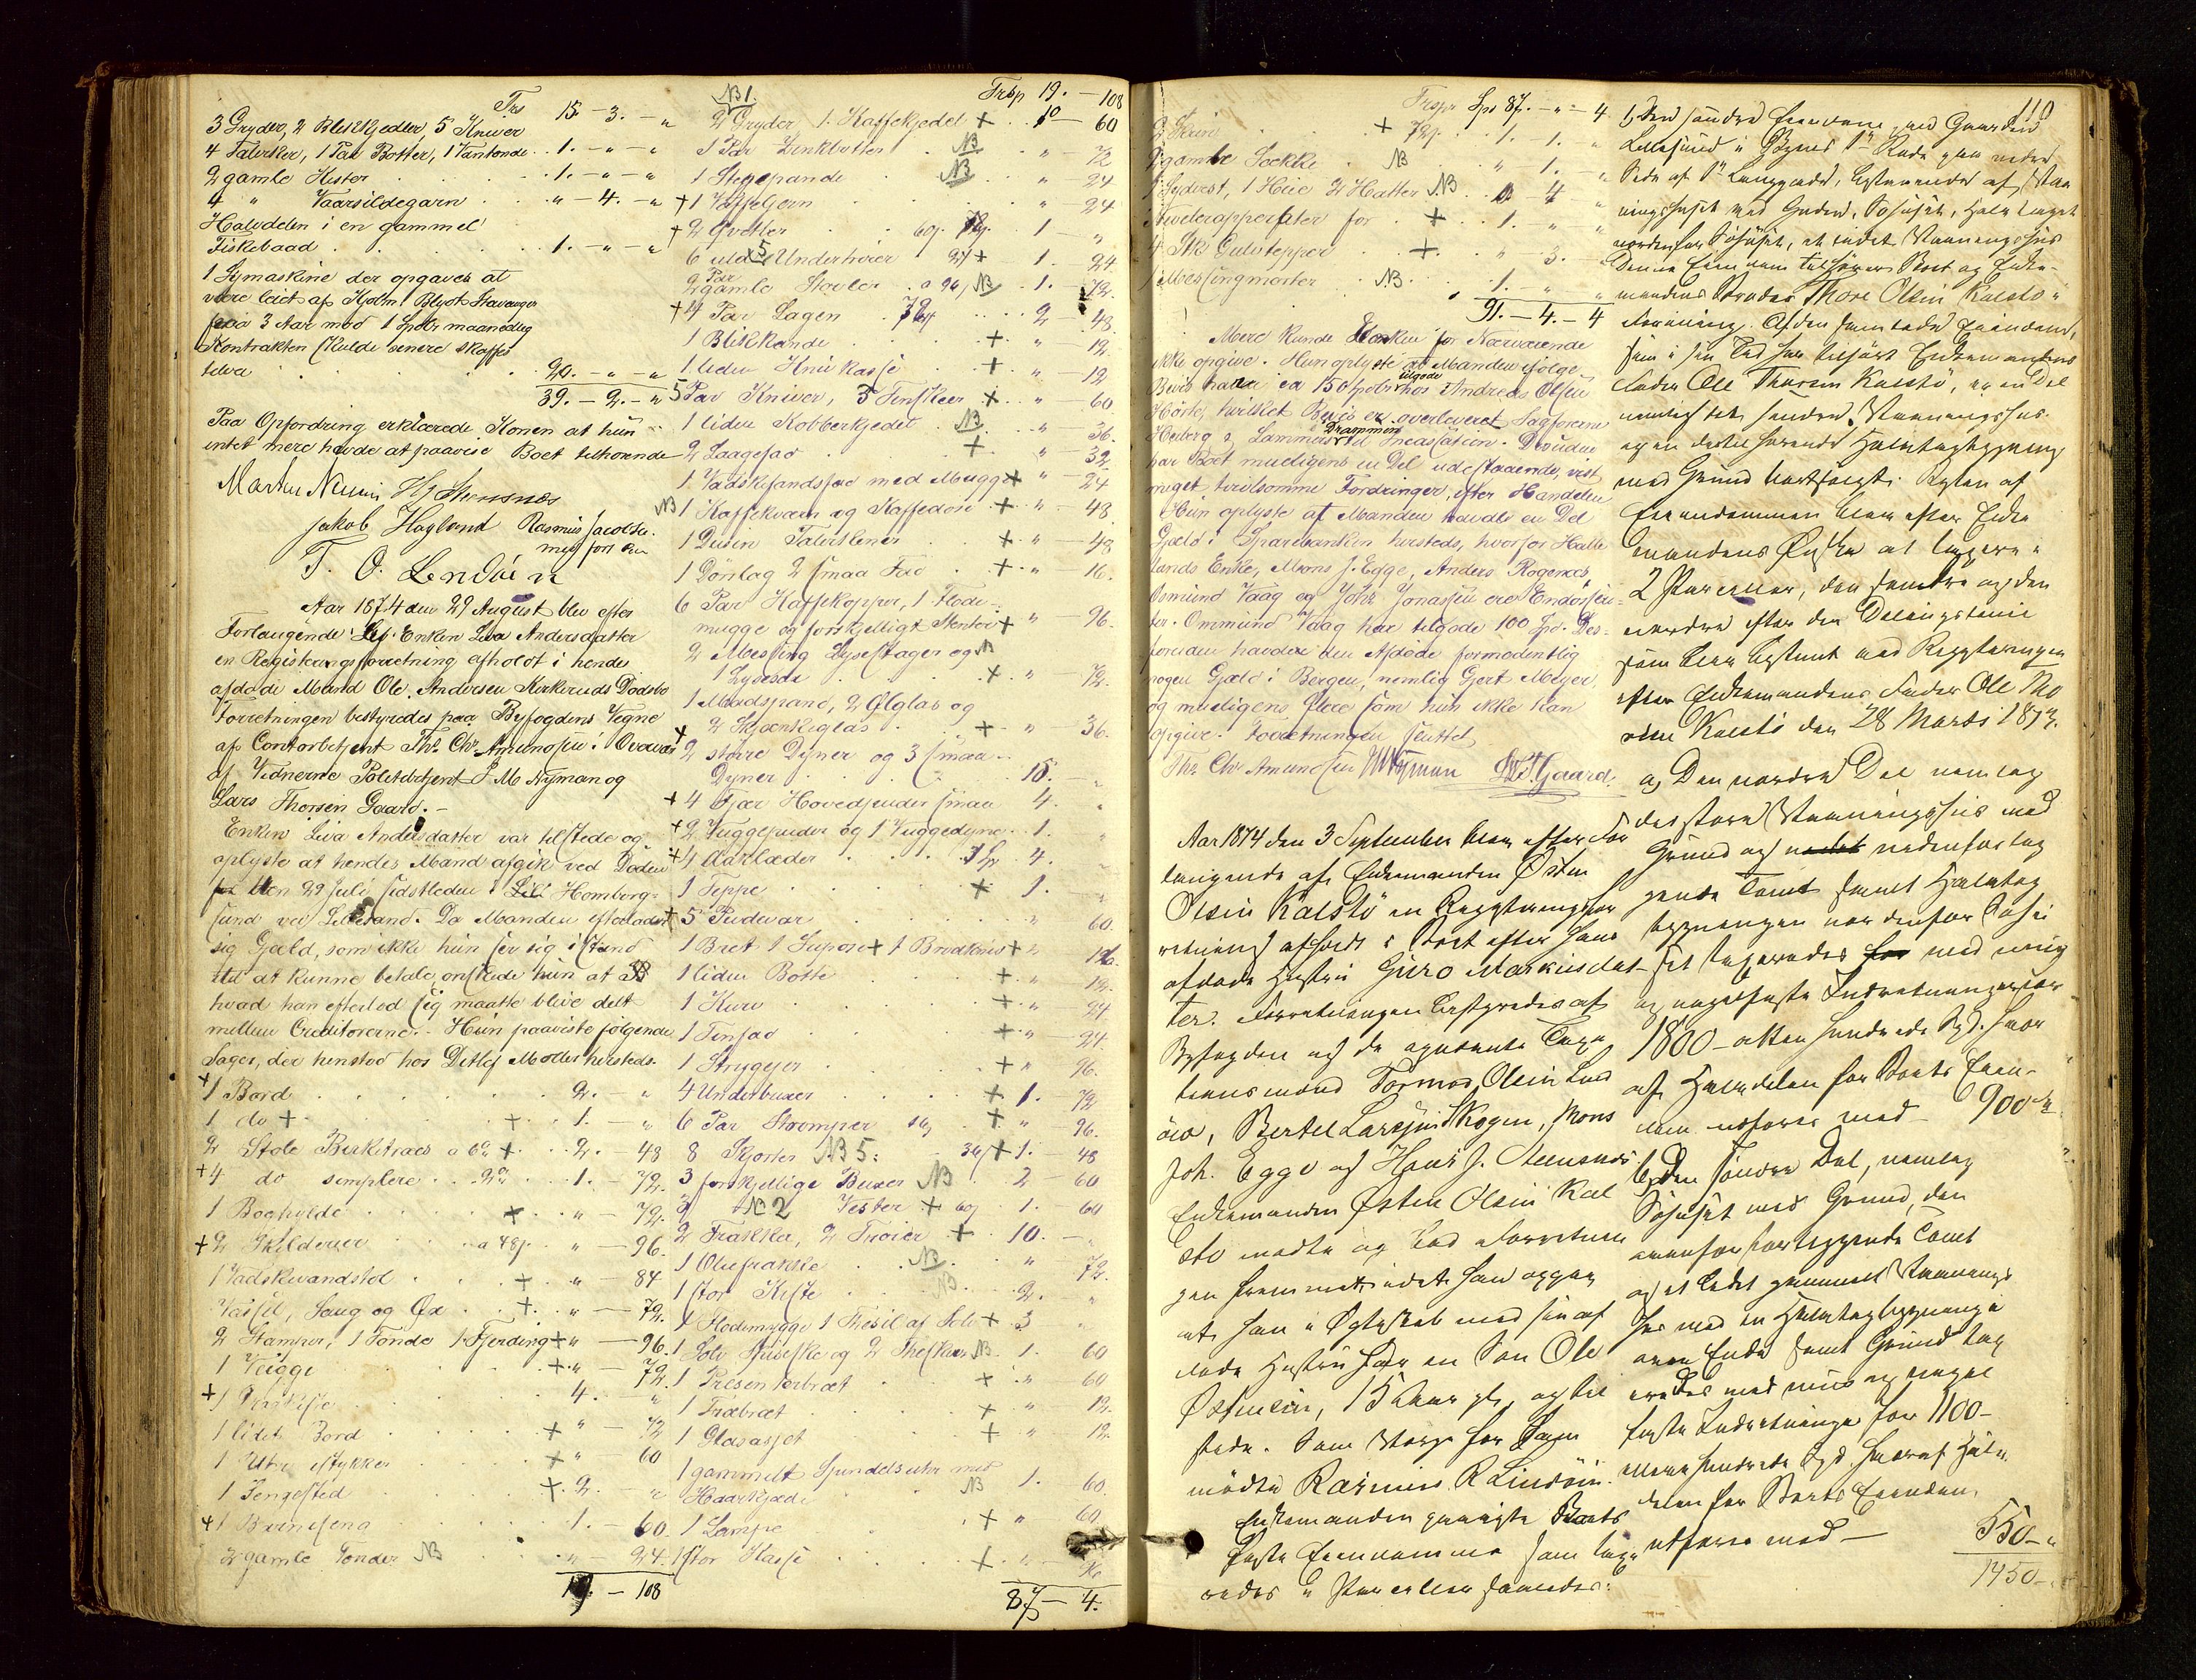 Trs 15. - 3. - "
3 Gryder, 2 Blikkjedler, 5 Kniver
4 Talerker, 1 Par Bøtter, 1 Vantønde . 1. - " - "
2 gamle Kister . . . 1. - " - "
4 " Vaarsildegarn . . " - 4. - "
Halvdelen i en gammel
Fiskebaad . . . 1. - " - "
1 Symaskine der opgaves at
være leiet af Kjøbm. Blyst Stavanger
paa 3 Aar mod 1 Spdlr maanedlig
Kontrakten skulde senere skaffes
tilveie . . . 20. - " - "
39. - 2. - "
Paa Opfordring erklærede Konen at hun
intet mere havde at paavise Boet tilhørende
H J Steensnæs
Jakob Hagland Rasmus Jacobsen
med ført Pen
T. O. Lindøen
Aar 1874 den 29 August blev efter
Forlangende af Enken Liva Andersdatter
en Registeringsforretning afholdt i hendes
afdøde Mand Ole Andersen Kirkeruds Dødsbo
Forretningen bestyredes paa Byfogdens Vegne
af Contorbetjent Ths. Chr. Amundsen i Overvær
af Vidnerne Politibetjent P M Nyman og
Lars Thorsen Gaard. -
Enken Liva Andersdatter var tilstede og
oplyste at hendes Mand afgik ved Døden
den 29 Juli sidstleden i Homborg-
sund ved Lillesand. Da Manden efterlader
sig Gjæld, som ikke hun ser sig i stand
til at kunne betale, ønskede hun at
hvad han efterlod sig maatte blive delt
mellem Creditorerne. - Hun paaviste følgende
Sager, der henstod hos Detlef Møller hersteds.
+ 1 Bord . . . 2. - "
1 do + . . . + . 1. - "
2 Stole Birketræes a 6 + . 2. - 48
+ 4 do simplere . . 1. - 72.
1 Boghylde . . + . " - 72.
+ 2 Skilderier a 48 . " - 96.
1 Vadskevandstol . + . " - 84
Vassel, Saug og Øx . . + . " - 72.
2 Stamper, 1 Tønde 1 Fjerding + " - 96.
1 Vugge . . + . " - 72.
+ 1 . . . 4. - "
1 lidet Bord . . + " - 72
1 . . + " 60
1 Sengested . . + . 2. - "
+ 1 Barneseng . . 1. - 60.
2 gamle Tønder NB . . " - 24.
19. - 108
NB 1. Trsp 19. - 108
2 Gryder, 1 Kaffekjedel + . 10 - 60
1 Par Zinkbøtter . NB . " - 72
1 Stegepande . NB . " - 24
+ 1 Vaffeljern . . " - 24
+ 2 . . 1 - "
6 uld Underhøier 27 + 1. 24.
2 Par gamle Støvler . a 96 NB . 1. - 72.
+ 4 Par Lagen . 72 . . 2 - 48.
1 Blikkande . . + . " - 12
1 liden Knivkasse . + . " - 12
5 Par Kniver, 3 Tinskeer + . " - 60.
1 liden Kobberkjedel . NB . " - 36.
2 Laagefad . . + . " - 32
1 Vadskevandsfad med Mugge + " - 24
NB 1 Kaffekværn og Kaffedose + " - 48
1 Dusin Talerkener . + . " - 48
1 Dørslag 2 smaa Fad . + . " - 16.
6 Par Kaffekopper, 1 Fløde-
mugge og forskjelligt Stentøi + " - 96.
2 Messing Lysestager og NB
1 Lysesax . . + . " - 72.
1 Madspand, 2 Ølglas og
+ 2 Skjænkeglas . + . " - 36.
2 større Dyner og 3 smaa
Dyner . . . 15. - "
+ 4 Fjær Hovedpuder smaa . 4. "
+ 2 Vuggepuder og 1 Vuggedyne . 1. "
+ 4 Aarlæder . . 1 Sp . 4. "
1 Teppe . . + 1. "
+ 5 Pudevar . . " 60.
1 Bret 1 Suppose + 1 Brødkniv + " 16.
1 liden Bøtte . + . " 12.
1 Kurv . . + . " 24
1 Tinfad . . + . " - 24.
1 Strygejer . . + " 96.
4 Underbuxer . + 1. - 72
6 Par Strømper 16 + " - 96.
8 Skjorter NB 5: 36 + 1. - 48
3 forskjellige Buxer NB . 2 - 60
3 N 2 Vester + 60 . 1. - 60
2 Frakker, 2 Trøier . + . 10. - "
1 Oliefrakke . NB . " 72.
1 stor Kiste . NB . 2. - "
1 Flødemugge 1 Thesil af Sølv + . 3 "
1 Sølv Spiseske og 2 Theskeer NB . 1. 60
1 Presenterbret . + . " 60
1 Træbret . . + " 12.
1 Glasasjet . . + " 12.
1 gammelt Spindelsuhr med
Haarkjæde . . NB 1. 60.
1 Lampe . . + " 60
1 stor Kasse . . + .
87 - 4.
110
Trspr Sps 87. - " - 4
2 Skrin . . + 72 . 1. 1. "
2 gamle Sække . NB . " 1. - "
1 Sydvest, 1 Hue 2 Hatter NB . " 4 - "
for . + . 1. " "
4 Stk Gulvtepper . + . " 3. - "
1 Messingmorter . NB . 1. " "
91. - 4. - 4
Mere kunde Enken for Nærværende
ikke opgive. Hun oplyste at Manden ifølge
Bevis havde ca 150 Spdlr tilgode hos Andreas Olsen
Hørte, hvilket Bevis er overleveret Sagførerne
Heiberg & Lammers Drammen til Incassation. Desuden
har Boet muligens en Del udestaaende, vist
meget tvivlsomme Fordringer, efter Handelen
Hun oplyste at Manden havde en Del
Gjæld i Sparebanken hersteds, hvorfor Halle
lands Enke, Mons J. Egge, Anders Rogenæs
Osmund Vaag og Johs Jonassen ere Endossen-
ter. Ommund Vaag har tilgode 100 Spd. Des-
foruden havde den Afdøde formodentlig
nogen Gjæld i Bergen, nemlig Gjert Meyer
og muligens flere som hun ikke kan
opgive. Forretningen sluttet
Ths. Chr. Amundsen PMNyman L.T.Gaard
Aar 1874 den 3 September blev efter For
langende af Enkemanden Østen
Olsen Kalstø en Registeringsfor
retning afholdt i Boet efter hans
afdøde Hustru Guro Markusdat-
ter. Forretningen bestyredes af
Byfogden og de opnævnte Taxa
tionsmænd Tormod Olsen Lind
øen, Bertel Larsen Skogen, Mons
Joh. Egge og Hans J. Steensnæs
Enkemanden Østen Olsen Kal
stø mødte og lod Forretnin
gen fremme, idet han opgav
at han i Ægteskab med sin af
døde Hustru har en Søn Ole
Østensen, 15 Aar gl, og til
stede. Som Værge for ham
mødte Rasmus R Lindøen.
Enkemanden paaviste Boets
faste Eiendomme som taxe
redes i Parceller saaledes:
1, Den søndre Eiendom, ved Gaarden
Lillesund i Byens 1ste Rode paa nedre
Side af 1ste Langgade, bestaaende af Vaa
ningshuset med Gaden, Søhuset, Halvtaget
nordenfor Søhuset, et lidet Vaaningshus
Denne Eiendom tilhører Boet og Enke-
mandens Broder Thore Olsen Kalstø i
Forening. Af den samlede Eiendom,
som i sin Tid har tilhørt Enkemandens
Fader Ole Thorsen Kalstø, er en Del
nemlig det søndre Vaaningshus
og en dertil hørende Halvtagbygning
med Grund bortsolgt. Resten af
Eiendommen blev efter Enke
mandens Ønske at taxere i
2 Parceller, den søndre og den
nordre efter den Delingslinie
som blev bestemt ved Registeringen
efter Enkemandens Fader Ole Tho
rsen Kalstø den 28 Marts 1873.
a, Den nordre Del nemlig
det store Vaaningshus med
Grund og nedenforlig
gende Tomt samt Halvtag
bygningen nordenfor Søhu
set taxeredes med muur
og nagelfaste Indretninger for
1800 - atten hundrede Spd. hvor
af Halvdelen for Boets Eien-
dom udføres med 900 "
b, Den søndre Del, nemlig
Søhuset med Grund, den
ovenfor liggende Tomt
og et lidet gammelt Vaanings
hus med en Halvtagbygning i
øvre Ende samt Grund tax
eredes med muur og nagel
faste Indretninger for 1100 -
elleve hundrede Spd. hvoraf Halv
delen for Boets Eiendom
udføres med - 550 - "
1450 - "